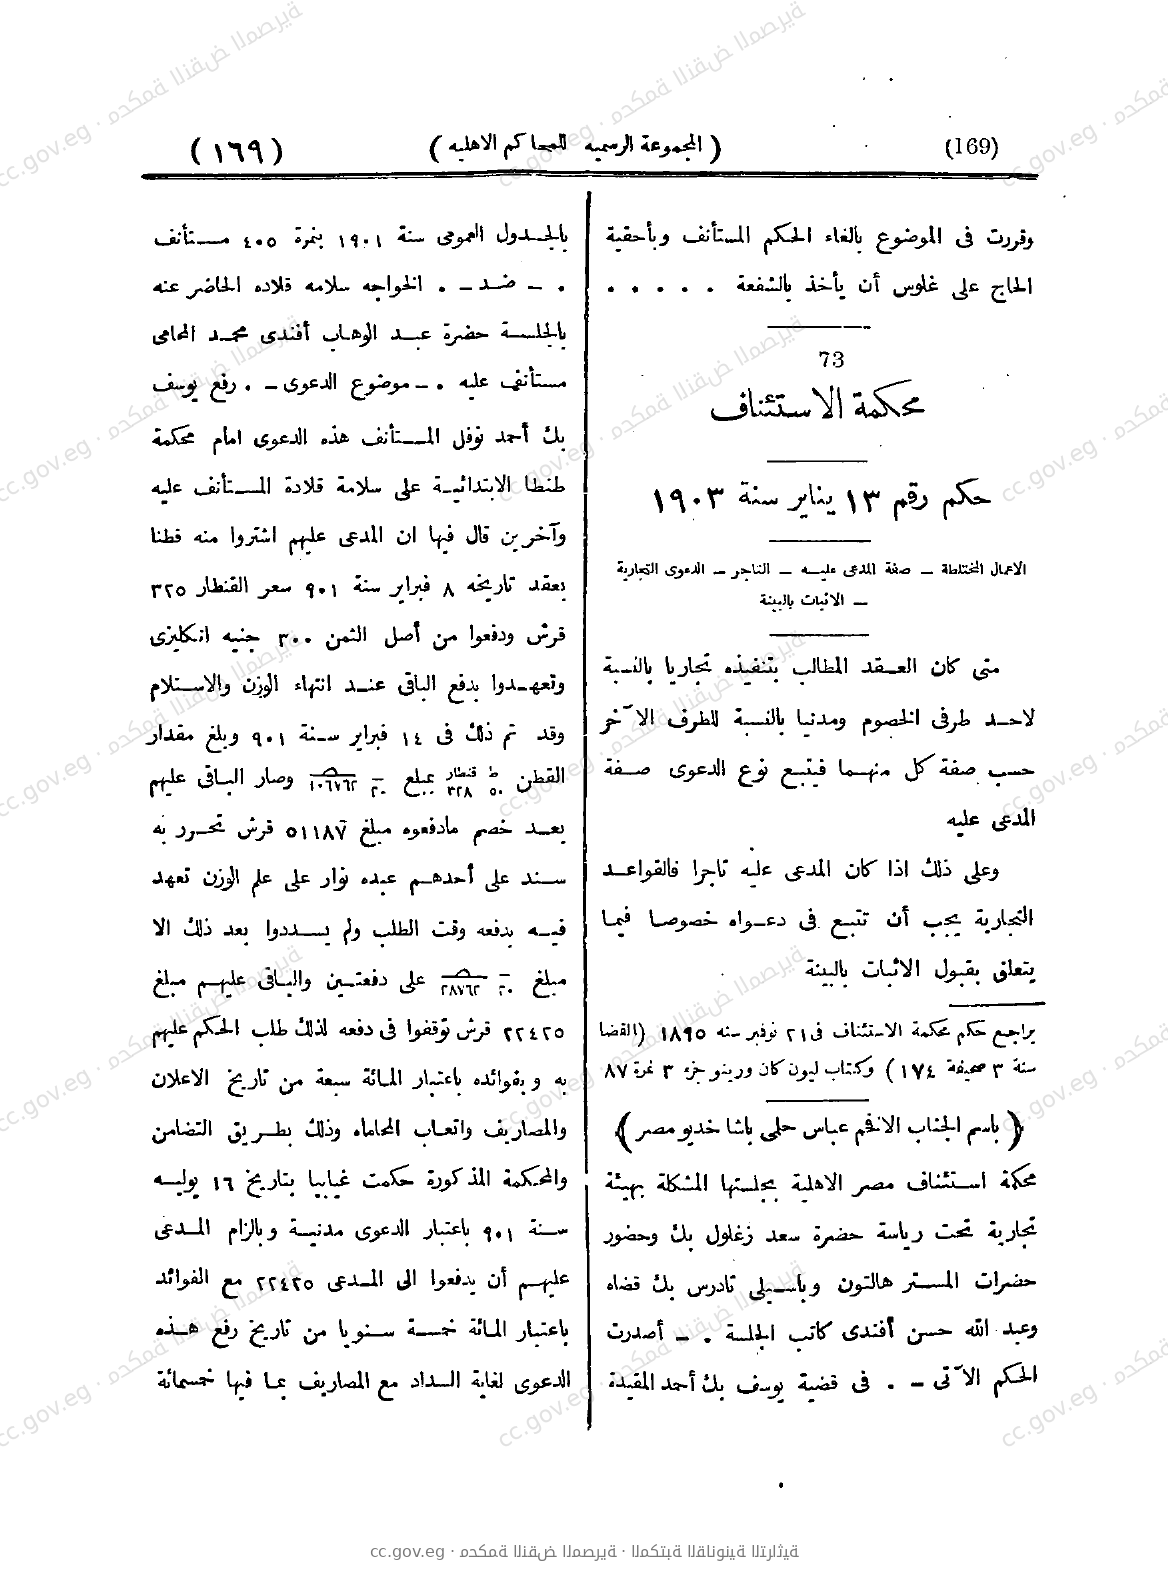 (169) ( المجموعة الرسميه للمحاكم الاهليه ) ( ١٦٩ )
وقررت فى الموضوع بالغاء الحكم المستأنف وبأحقية
الحاج على غلوس أن يأخذ بالشفعة . . . . .
73
محكمة الاستئناف
حكم رقم ١٣ يناير سنة ١٩٠٣
الاعمال المختلطة – صفة المدعى عليه – التاجر – الدعوى التجارية
– الاثبات بالبينة
متى كان العقد المطالب بتنفيذه تجاريا بالنسبة
لاحد طرفى الخصوم ومدنيا بالنسبة للطرف الآخر
حسب صفة كل منهما فيتبع نوع الدعوى صفة
المدعى عليه
وعلى ذلك اذا كان المدعى عليه تاجرا فالقواعد
التجارية يجب أن تتبع فى دعواه خصوصا فيما
يتعلق بقبول الاثبات بالبينة
يراجع حكم محكمة الاستئناف فى ٢١ نوفبر سنه ١٨٩٥ (القضا
سنة ٣ صحيفة ١٧٤ ) وكتاب ليون كان ورينو جزء ٣ نمرة ٨٧
( باسم الجناب الافخم عباس حلمى باشا خديو مصر )
محكمة استئناف مصر الاهلية بجلستها المشكلة بهيئة
تجارية تحت رياسة حضرة سعد زغلول بك وحضور
حضرات المستر هالتون وباسيلى تادرس بك قضاه
وعبد الله حسن أفندى كاتب الجلسة . – أصدرت
الحكم الآتى – . فى قضية يوسف بك أحمد المقيدة
بالجدول العمومى سنة ١٩٠١ بنمرة ٤٠٥ مستأنف
. – ضد – . الخواجه سلامه قلاده الحاضر عنه
بالجلسة حضرة عبد الوهاب أفندى محمد المحامى
مستأنف عليه . – موضوع الدعوى – . رفع يوسف
بك أحمد نوفل المستأنف هذه الدعوى امام محكمة
طنطا الابتدائية على سلامة قلادة المستأنف عليه
وآخرين قال فيها ان المدعى عليهم اشتروا منه قطنا
بعقد تاريخه ٨ فبراير سنة ٩٠١ سعر القنطار ٣٢٥
قرش ودفعوا من أصل الثمن ٣٠٠ جنيه انكليزى
وتعهدوا بدفع الباقى عند انتهاء الوزن والاستلام
وقد تم ذلك فى ١٤ فبراير سنة ٩٠١ وبلغ مقدار
القطن ط ٥٠ قنطار ٣٢٨ بمبلغ ٢٠ ١٠٦٧٦٢ وصار الباقى عليهم
بعد خصم مادفعوه مبلغ ٥١١٨٧ قرش تحرر به
سند على أحدهم عبده نوار على علم الوزن تعهد
فيه بدفعه وقت الطلب ولم يسددوا بعد ذلك الا
مبلغ ٢٠ ٢٨٧٦٢ على دفعتين والباقى عليهم مبلغ
٢٢٤٢٥ قرش توقفوا فى دفعه لذلك طلب الحكم عليهم
به وبفوائده باعتبار المائة سبعة من تاريخ الاعلان
والمصاريف واتعاب المحاماه وذلك بطريق التضامن
والمحكمة المذكورة حكمت غيابيا بتاريخ ١٦ يوليه
سنة ٩٠١ باعتبار الدعوى مدنية وبالزام المدعى
عليهم أن يدفعوا الى المدعى ٢٢٤٢٥ مع الفوائد
باعتبار المائة خمسة سنويا من تاريخ رفع هذه
الدعوى لغاية السداد مع المصاريف بما فيها خمسمائة
cc.gov.eg · محكمة النقض المصرية · المكتبة القانونية التراثية